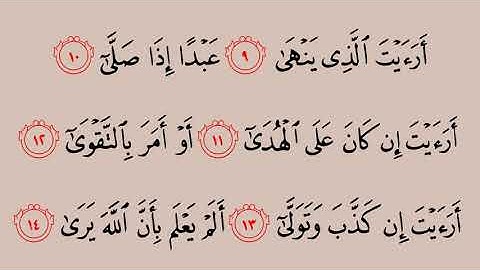 أَرَءَيۡتَ ٱلَّذِي يَنۡهَىٰ ٩ عَبۡدًا إِذَا صَلَّىٰٓ ١٠
أَرَءَيۡتَ إِن كَانَ عَلَى ٱلۡهُدَىٰٓ ١١ أَوۡ أَمَرَ بِٱلتَّقۡوَىٰٓ ١٢
أَرَءَيۡتَ إِن كَذَّبَ وَتَوَلَّىٰٓ ١٣ أَلَمۡ يَعۡلَم بِأَنَّ ٱللَّهَ يَرَىٰ ١٤